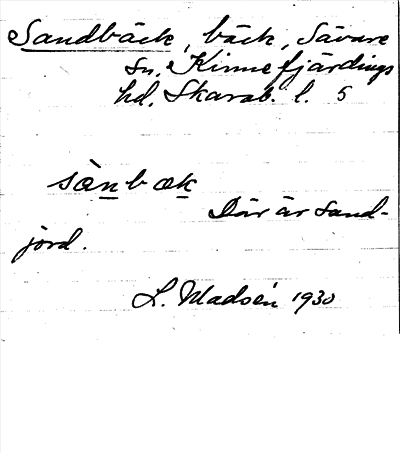 Sandbäck, bäck, Sävare
sn, Kinnefjärdings
hd, Skarab. l. 5
sànbæk
Där är sand-
jord.
L. Madsén 1930